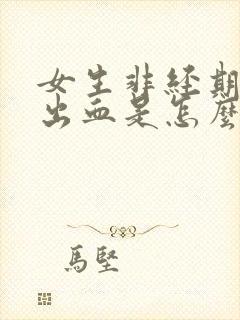 女生非经期
出血是怎麼
馬堅